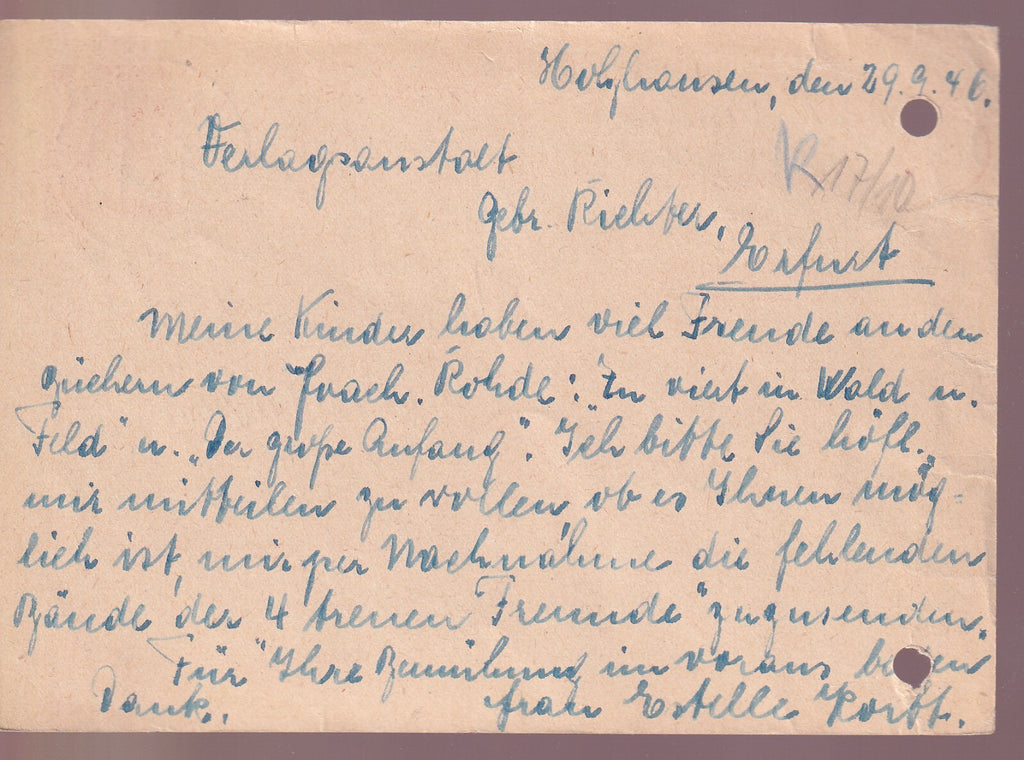 Holzhausen, den 29.9.46.
Verlagsanstalt
K 17/10
Gebr. Richter,
Erfurt
Meine Kinder haben viel Freude an den
Büchern von Joach. Rohde: "Zu viert in Wald u.
Feld" u. „Der große Anfang". Ich bitte Sie höfl.,
mir mitteilen zu wollen, ob es Ihnen mög-
lich ist, mir per Nachnahme die fehlenden
Bände „der 4 treuen Freunde" zuzusenden.
Für Ihre Bemühung im voraus besten
Dank. Frau Estelle